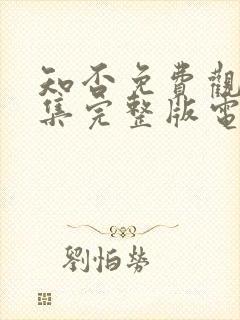 知否免費觀
集完整版電
劉怕勞